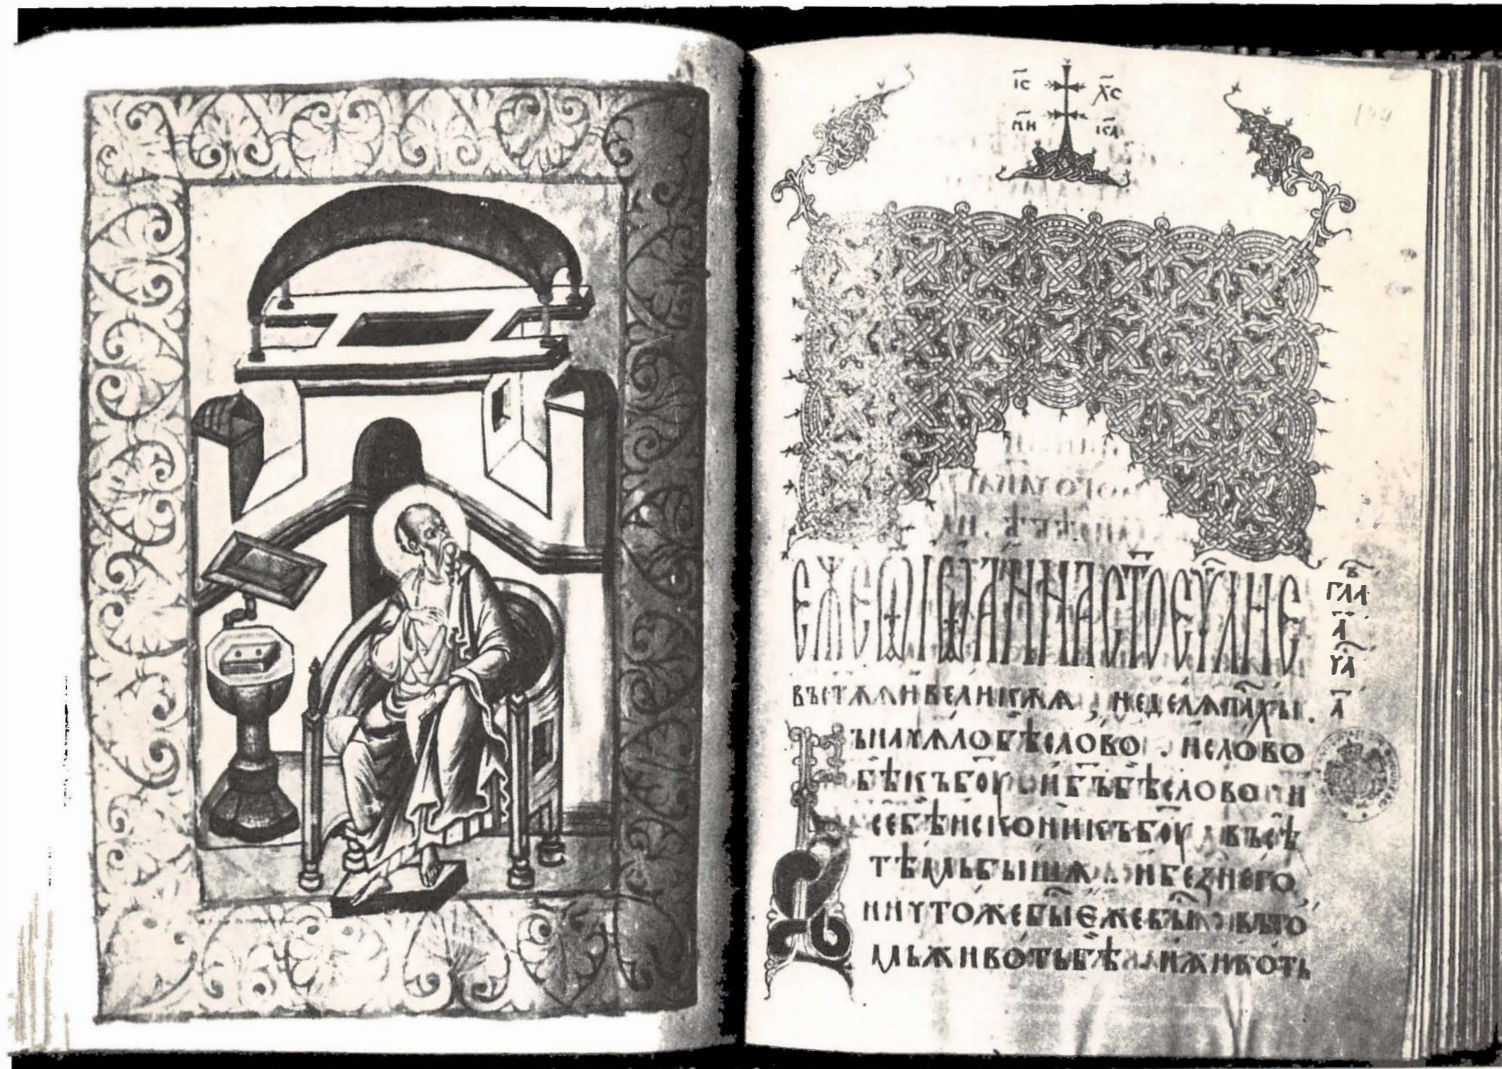 І҃С Х҃С
НИ КА
ЕЖЕ Ѿ ІѠАННА СТ҃ОЕ ЕѴ҃ЛІЕ
въ ст҃ѫѧ и великѫѧ недѣлѧ пасхы.
ъ начѧло бѣ слово и слово
бѣ къ б҃оу и б҃ъ бѣ слово
се бѣ искони къ б҃оу въсѣ
тѣмь бышѧ и без него
ничтоже бы еже бы въ то
мь животь бѣ и животь
гла
а҃
ча
а҃